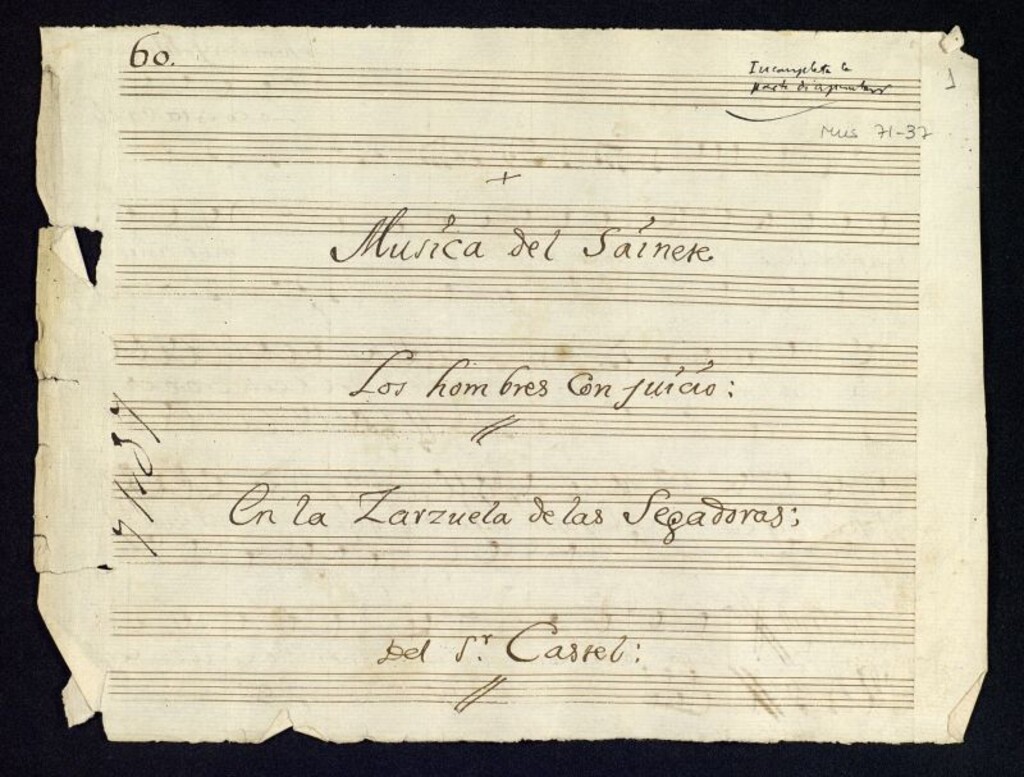 60.
Incompleta la
parte de apuntar
1
Mus 71-37
+
Musica del Sainete
Los hombres Con juicio:
En la Zarzuela de las Segadoras;
Del S.r Castel: